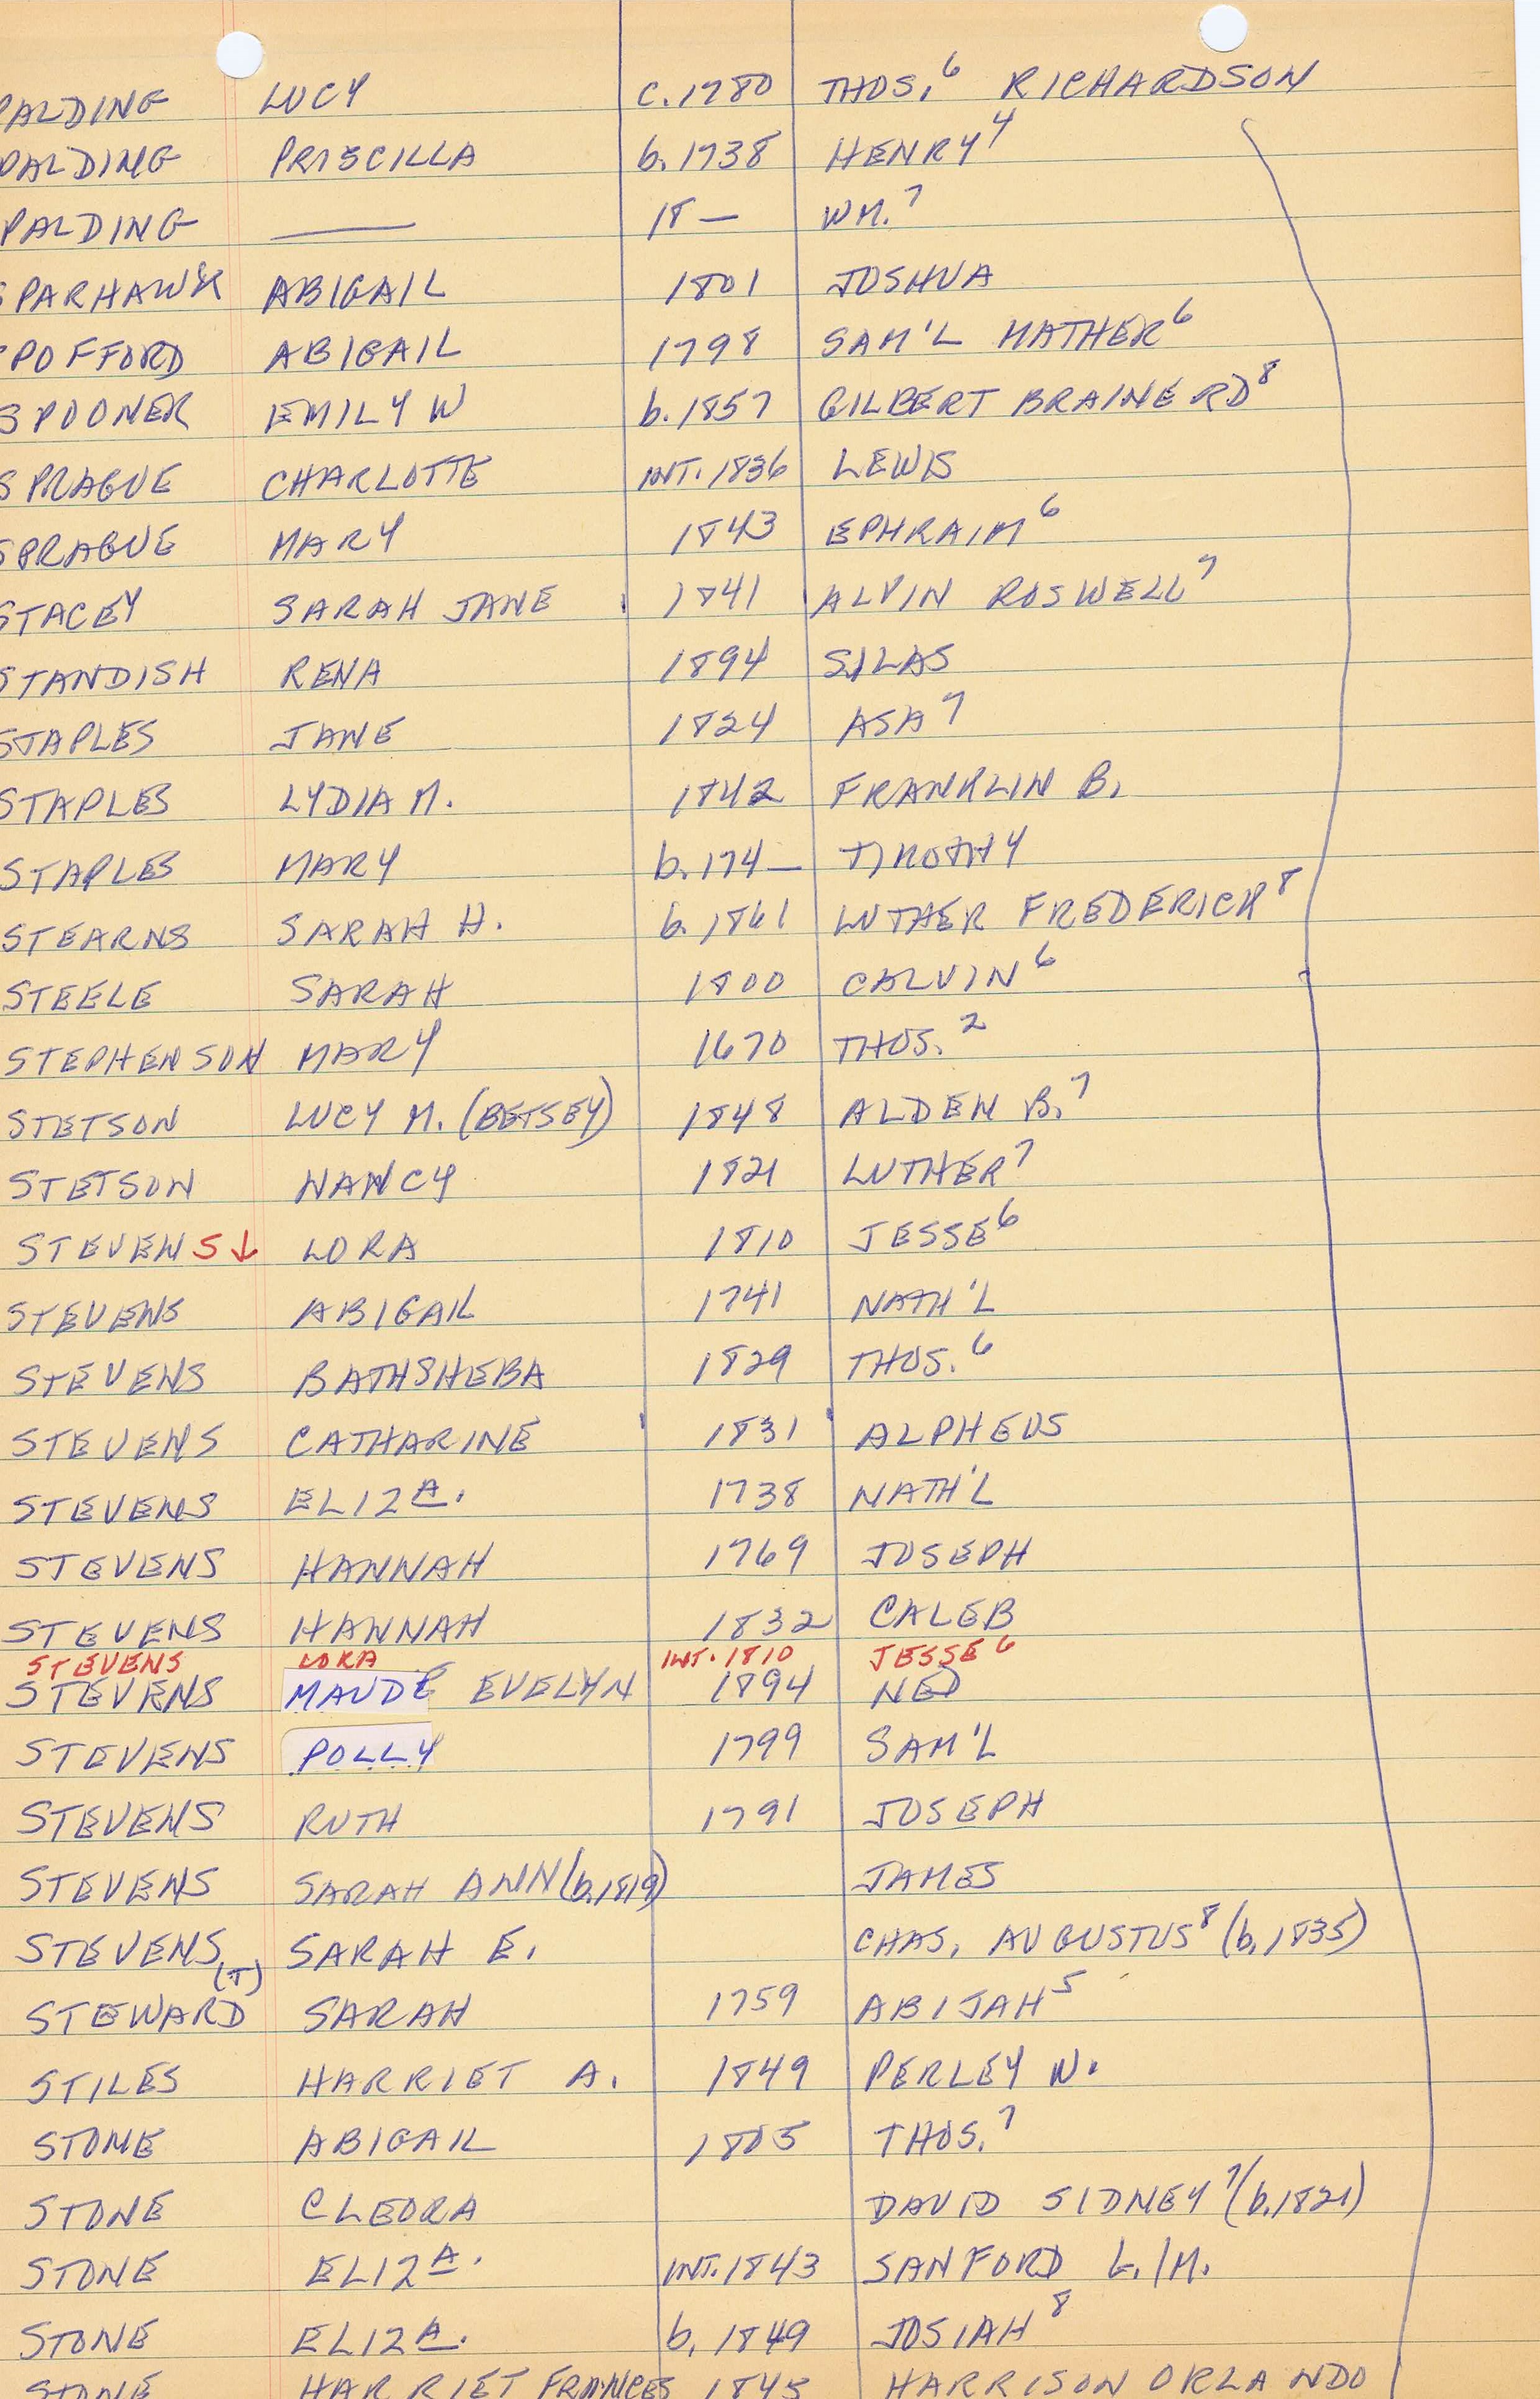 PALDING LUCY c. 1780 THOS.⁶ RICHARDSON
PALDING PRISCILLA b. 1738 HENRY⁴
PALDING — 18— WM.⁷
SPARHAWK ABIGAIL 1801 JOSHUA
SPOFFORD ABIGAIL 1798 SAM'L MATHER⁶
SPOONER EMILY W b. 1857 GILBERT BRAINERD⁸
SPRAGUE CHARLOTTE INT. 1836 LEWIS
SPRAGUE MARY 1843 EPHRAIM⁶
STACEY SARAH JANE 1841 ALVIN ROSWELL⁷
STANDISH RENA 1894 SILAS
STAPLES JANE 1824 ASA⁷
STAPLES LYDIA M. 1842 FRANKLIN B.
STAPLES MARY b. 174— TIMOTHY
STEARNS SARAH H. b. 1861 LUTHER FREDERICK⁸
STEELE SARAH 1800 CALVIN⁶
STEPHENSON MARY 1670 THOS.²
STETSON LUCY M. (BETSEY) 1848 ALDEN B.⁷
STETSON NANCY 1821 LUTHER⁷
STEVENS ↓ LORA 1810 JESSE⁶
STEVENS ABIGAIL 1741 NATH'L
STEVENS BATHSHEBA 1829 THOS.⁶
STEVENS CATHARINE 1831 ALPHEUS
STEVENS ELIZA. 1738 NATH'L
STEVENS HANNAH 1769 JOSEPH
STEVENS HANNAH 1832 CALEB
STEVENS LORA INT. 1810 JESSE⁶
STEVENS MAUDE EVELYN 1894 NED
STEVENS POLLY 1799 SAM'L
STEVENS RUTH 1791 JOSEPH
STEVENS SARAH ANN (b. 1819) JAMES
STEVENS SARAH E. CHAS. AUGUSTUS⁸ (b. 1835)
STEWARD (T) SARAH 1759 ABIJAH⁵
STILES HARRIET A. 1849 PERLEY N.
STONE ABIGAIL 1805 THOS.⁷
STONE CLEORA DAVID SIDNEY⁷ (b. 1821)
STONE ELIZA. INT. 1843 SANFORD L./M.
STONE ELIZA. b. 1849 JOSIAH⁸
STONE HARRIET FRANCES 1845 HARRISON ORLANDO